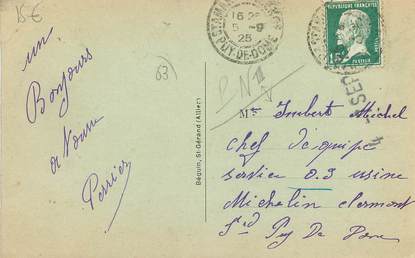 15€
un
Bonjours
a vous
Perrier
63
Béguin, St-Gérand (Allier)
16
5-9
25
PUY-DE-DOME
REPUBLIQUE FRANÇAISE
15c
PASTEUR
Mr Imbert Michel
chef d'équipe
service 0.3 usine
Michelin clermont
Fd Puy De Dome